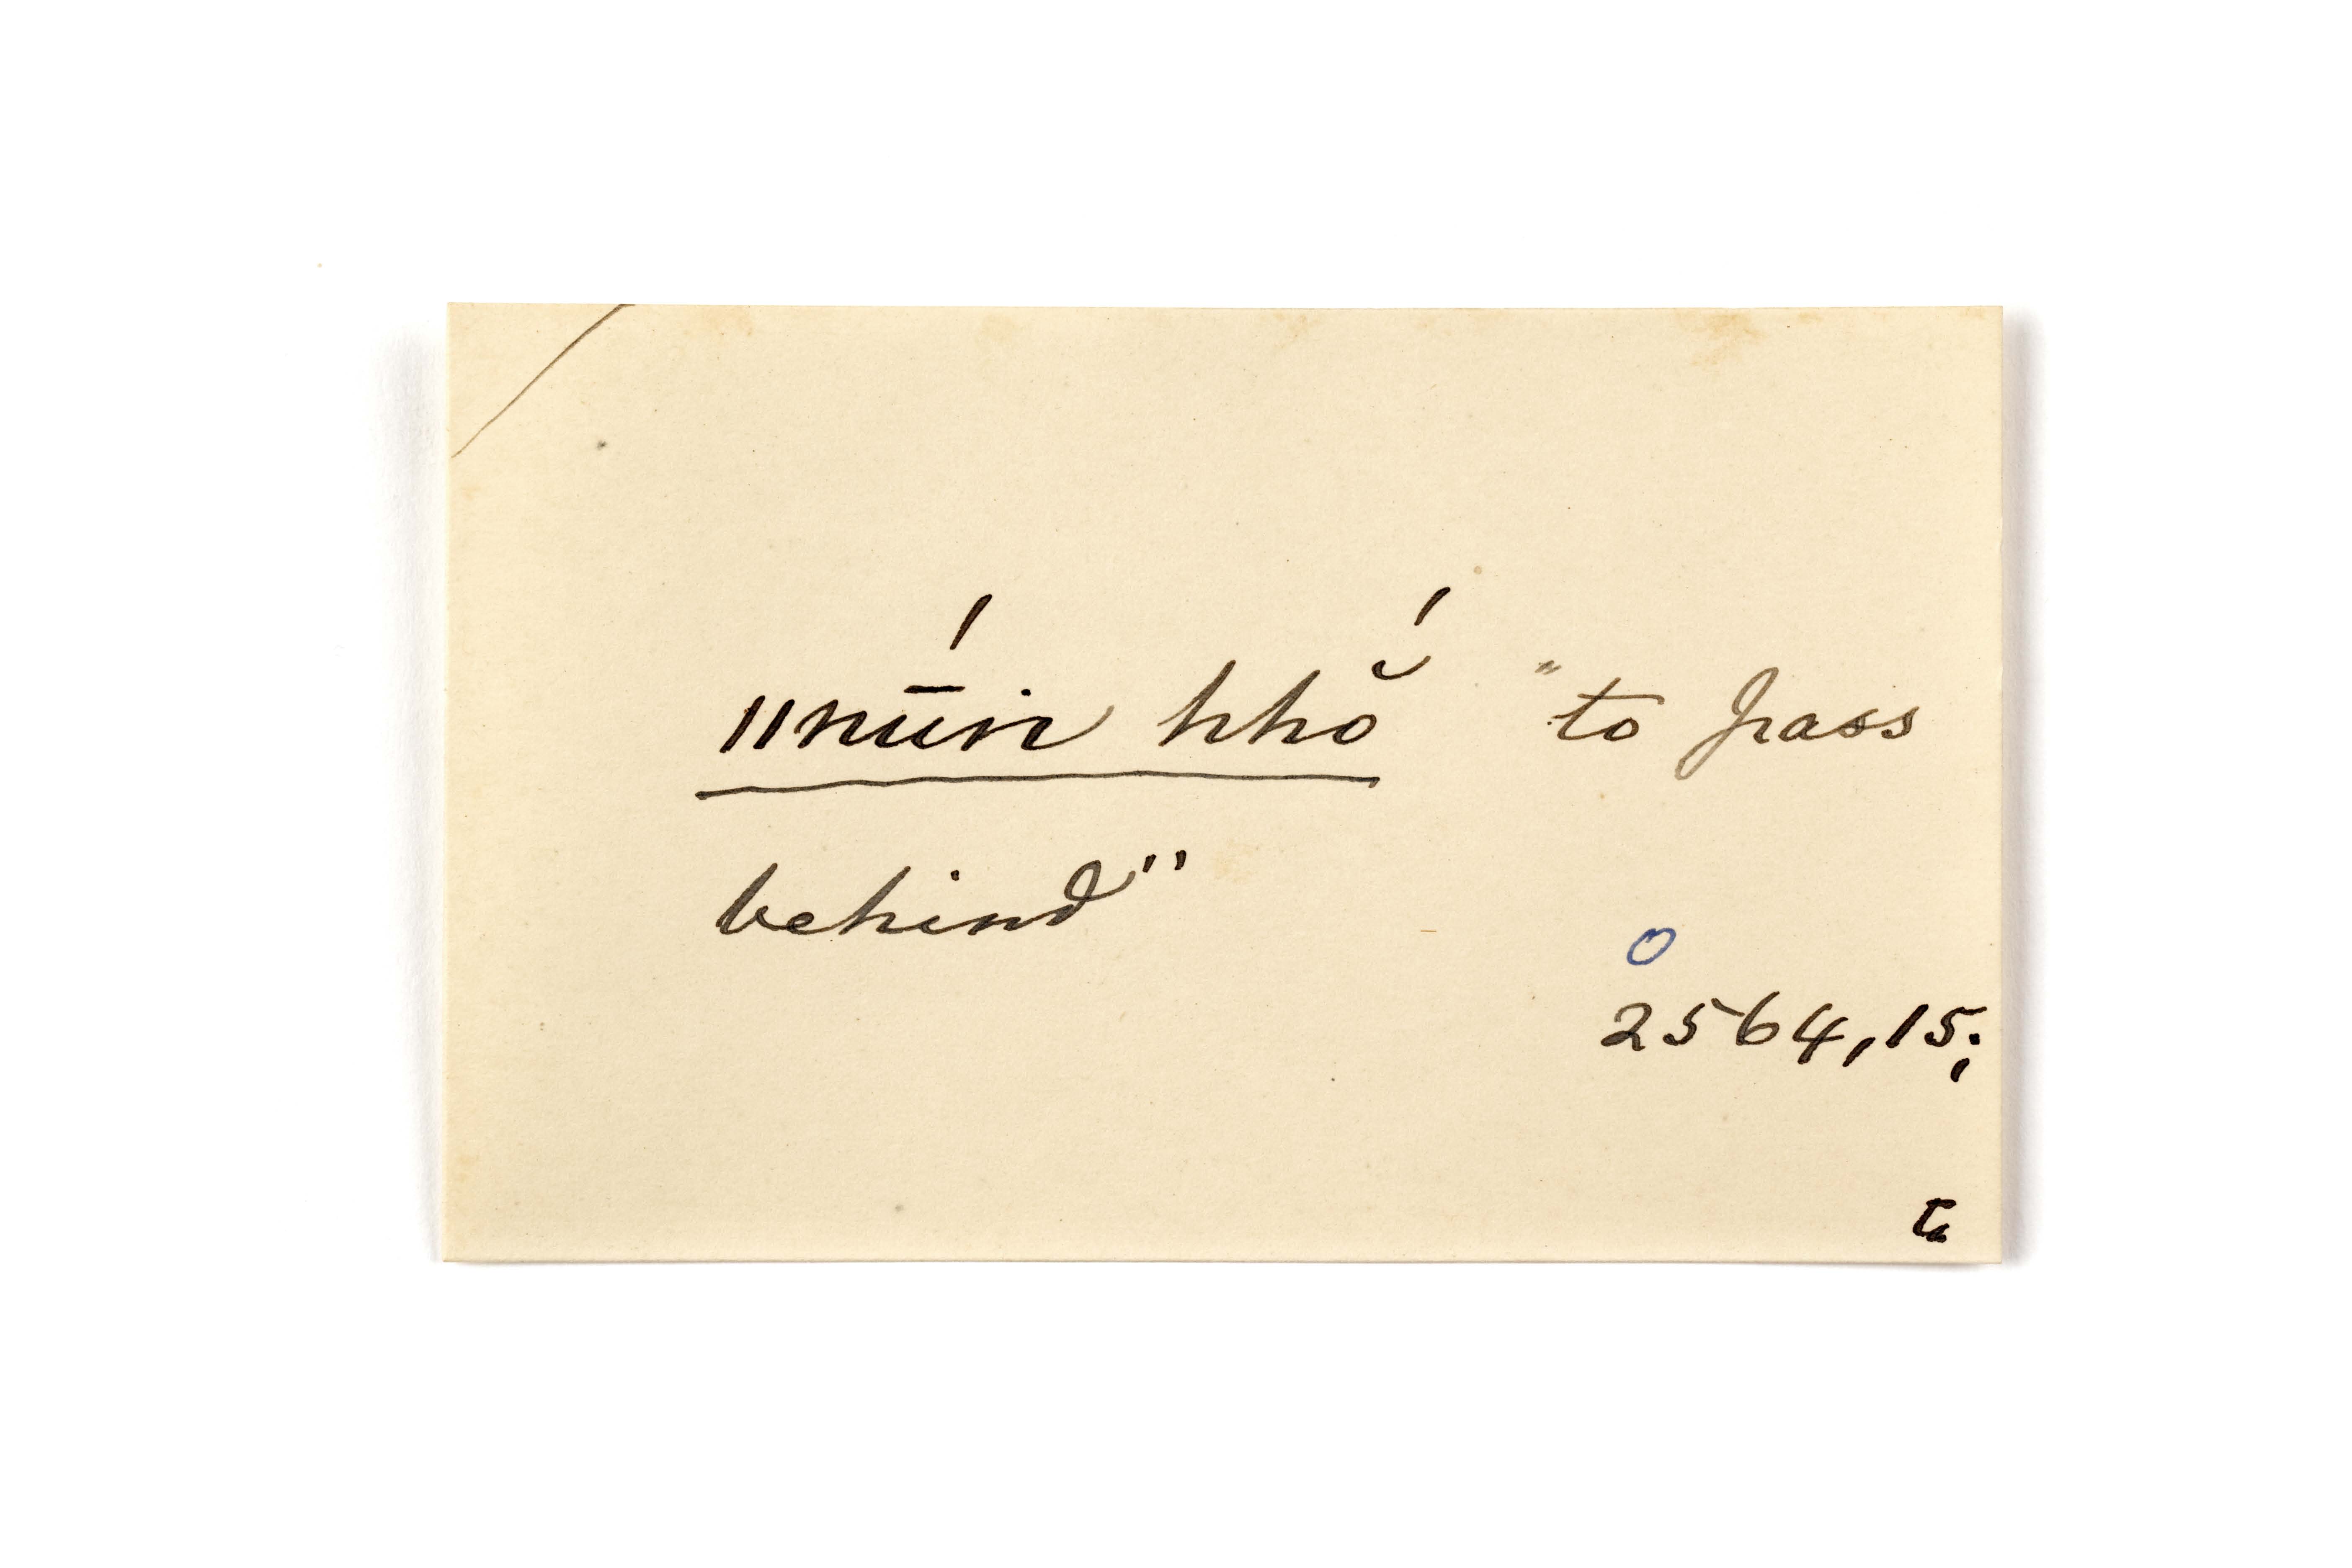 ǁnū́iṅ hhŏ́ "to pass
behind"
o
2564,15;